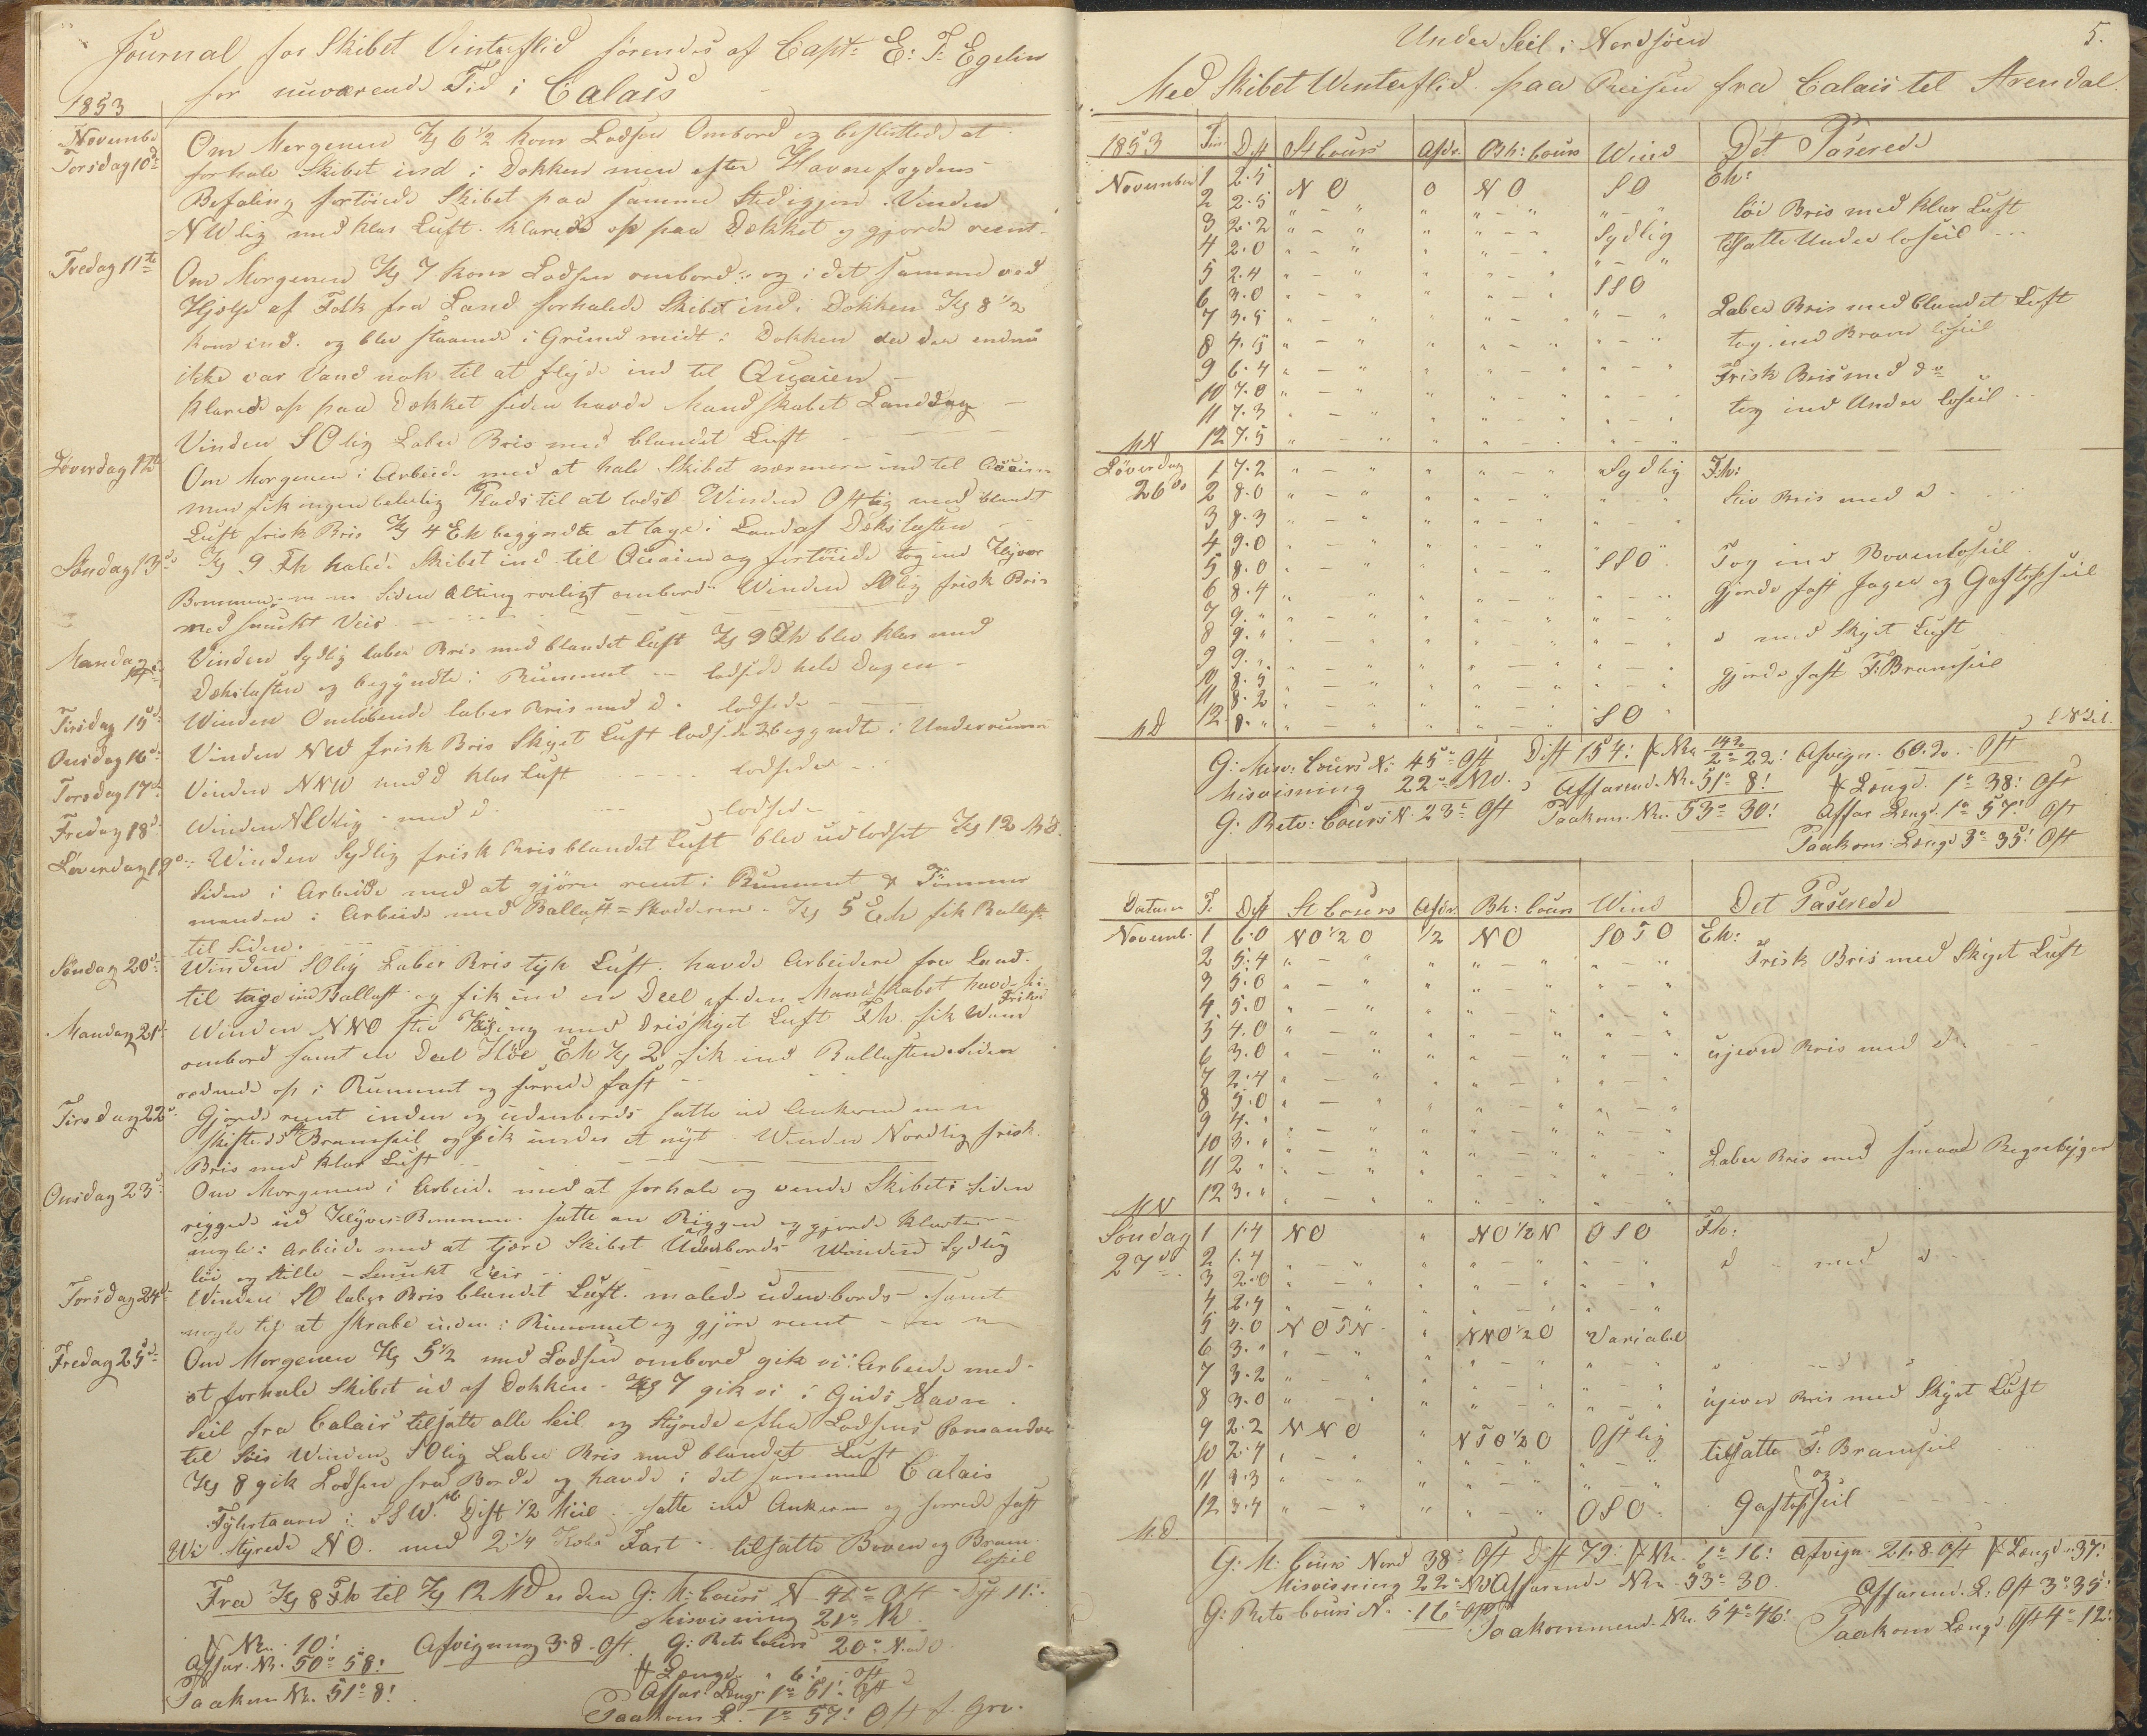 Journal for Skibet Vinterflid førendes af Capt: E: T: Egelin
for nuværende Tid i Calais
1853
November
Torsdag 10de Om Morgenen Kl 6 1/2 kom Lodsen Ombord og besluttede at
forhale Skibet ind i Dokken men efter Havnefogdens
Befaling fortøiede Skibet paa samme Sted igjen. Vinden
NWlig med klar Luft. klarede op paa Dækket og gjorde reent
Fredag 11te Om Morgenen Kl 7 kom Lodsen ombord og i det samme ved
Hjelp af Folk fra Land forhalede Skibet ind i Dokken Kl 8 1/2
kom ind. og blev staaende i Grund midt i Dokken da der endnu
ikke var Vand nok til at flyde ind til Quaien
klarede op paa Dækket siden havde Mandskabet Landdag
Vinden SOlig Laber Bris med blandet Luft
Løverdag 12te Om Morgenen i Arbeide med at hale Skibet nærmere ind til Quaien
men fik ingen beleilig Plads til at lodse Winden Ostlig med blandt
Luft frisk Bris Kl 4 Eh begyndte at tage i Land af Dækslasten
Søndag 13de Kl 9 Fh halede Skibet ind til Quaien og fortøiede tog ind Klyver
Bommen m m Siden Alting roeligt ombord Winden SOlig frisk Bris
med smukt Veir
Mandag 14de Vinden Sydlig laber Bris med blandet Luft Kl 9 Fh blev klar med
Dækslasten og begyndte i Rummet lodsede hele Dagen
Tirsdag 15de Winden Omløbende laber Bris med do lodsede
Onsdag 16de Vinden NW frisk Bris Skyet Luft lodsede begyndte i Underrummet
Torsdag 17de Vinden NNW med klar Luft lodsede
Fredag 18de Winden NWlig med do lodsede
Løverdag 19de Winden Sydlig frisk Bris blandet Luft blev udlodset Kl 12 Md
Siden i Arbeide med at gjøre reent i Rummet & Tømmer
manden i Arbeide med Ballast=Skodderne. Kl 5 Eh fik Ballast
til Siden.
Søndag 20de Winden SOlig Laber Bris tyk Luft. havde Arbeidere fra Land
til tage ind Ballast og fik ind en Deel af den Mandskabet havde
Frihed
Mandag 21de Winden NNO stiv Kuling med Skyet Luft Fh. fik Vand
ombord samt en Deel Høe Eh Kl 2 fik ind Ballasten Siden
ordnede op i Rummet og surrede fast
Tirsdag 22de Gjorde reent inden og udenbords satte ud Ankerne m m
skiftede St Bramseil og fik under et nyt Winden Nordlig frisk
Bris med klar Luft
Onsdag 23de Om Morgenen i Arbeide med at forhale og vende Skibet Siden
riggede ud Klyver=Bommen. satte an Riggen og gjorde klart
nogle i Arbeide med at tjære Skibet Udenbords Winden Sydlig
løi og stille Smukt Veir
Torsdag 24de Winden SO laber Bris blandet Luft. malede udenbords samt
nogle til at skrabe inden i Rummet og gjøre reent
Fredag 25de Om Morgenen Kl 5 1/2 med Lodsen ombord gik vi i Arbeide med
at forhale Skibet ud af Dokken. Kl 7 gik vi i Guds Navn
Seil fra Calais tilsatte alle Seil og Styrede efter Lodsens Comandoer
til Søes Winden SOlig Laber Bris med blandet Luft
Kl 8 gik Lodsen fra Borde og havde i det samme Calais
Fyhrtaarn i SSW. Dist 1/2 Miil satte ind Ankerne og surrede fast
Wi Styrede NO. med 2 1/4 Kobs Fart tilsatte Boven og Bram
loseil
Fra Kl 8 Fh til Kl 12 MD er den G: M: Cours N 41° Ost Dist 11.
Misvisning 21° NW
Br. 10! Afvigning 3.8 Ost. G: Retv Cours 20° N. O
Affar. Br. 50° 58! Længd 6! Ost
Paakom Br. 51° 8! Affar: Læng: 1° 51! Ost
Paakom L. 1° 57! Ost f. Grv.
Under Seil i Nordsøen 5.
Med Skibet Winterflid paa Reisen fra Calais til Arendal
1853 Tim Dist St Cours Afdr. Bb: Cours Wind Det Paserede
November 1 2.5 NO 0 NO SO Eh:
2 2.5 " - " " " - " " - " løi Bris med klar Luft
3 2.2 " - " " " - " Sydlig tilsatte Under loseil
4 2.0 " - " " " - " " - "
5 2.4 " - " " " - " SSO
6 3.0 " - " " " - " " - " Laber Bris med blandet Luft
7 3.5 " - " " " - " " - " tog ind Bram loseil
8 4.5 " - " " " - " " - "
9 6.4 " - " " " - " " - " Frisk Bris med do
10 7.0 " - " " " - " " - "
11 7.3 " - " " " - " " - " tog ind Under loseil
MN 12 7.5 " - " " " - " " - "
Løverdag 1 7.2 " - " " " - " Sydlig Fh:
26de 2 8.0 " - " " " - " " - " Stiv Bris med do
3 8.3 " - " " " - " " - "
4 9.0 " - " " " - " " - " Tog ind Bovenloseil
5 8.0 " - " " " - " SSO
6 8.4 " - " " " - " " - " Gjorde fast Jager og Gaftopseil
7 9. " " - " " " - " " - "
8 9. " " - " " " - " " - " do med Skyet Luft
9 9. " " - " " " - " " - "
10 8.5 " - " " " - " " - " gjorde fast F: Bramseil
11 8.2 " - " " " - " " - "
MD 12 8. " " - " " " - " SO
G: Misv: Cours N: 45° Ost Dist 154! Br 142 2° 22! Afvign. 60.2. Ost
Misvisning 22° NW. Affarend. Br. 51° 8! Længd. 1° 38! Ost
G: Retv: Cours N. 23° Ost Paakom. Br. 53° 30! Affar Længd. 1° 57! Ost
Paakom: Længd 3° 35! Ost
Datum T: Dist St Cours Afdr. Bb: Cours Wind Det Paserede
Novemb. 1 6.0 NO 1/2 O 1/2 NO SOTO Eh:
2 5.4 " - " " " - " " - " Frisk Bris med Skyet Luft
3 5.0 " - " " " - " " - "
4 5.0 " - " " " - " " - "
5 4.0 " - " " " - " " - "
6 3.0 " - " " " - " " - " ujevn Bris med do
7 2.4 " - " " " - " " - "
8 5.0 " - " " " - " " - "
9 4. " " - " " " - " " - "
10 3. " " - " " " - " " - "
11 2 " " - " " " - " " - " Laber Bris med smaae Regnbyger
MN 12 3. " " - " " " - " " - "
Søndag 1 1.4 NO " NO 1/2 N OSO Fh:
27de 2 1.4 " - " " " - " " - " do med do
3 2.0 " - " " " - " " - "
4 2.4 " - " " " - " " - "
5 3.0 NOTN " NNO 1/2 O Variabel
6 3. " " - " " " - " " - "
7 3.2 " - " " " - " " - "
8 3.0 " - " " " - " " - " ujevn Bris med Skyet Luft
9 2.2 NNO " NTO 1/2 O Ostlig
10 2.4 " - " " " - " " - " tilsatte F: Bramseil
11 3.3 " - " " " - " " - " og
MD 12 3.4 " - " " " - " OSO Gaftopseil
G: M: Cours Nord 38° Ost Dist 79! Br. 1° 16! Afvign. 21.8. Ost Længd. 37!
Misvisning 22° NW Affarende Br. 53° 30 Affarend. L: Ost 3° 35!
G: Retv Cours N. 16° Ost Paakommend. Br. 54° 46! Paakom Længd. Ost 4° 12!